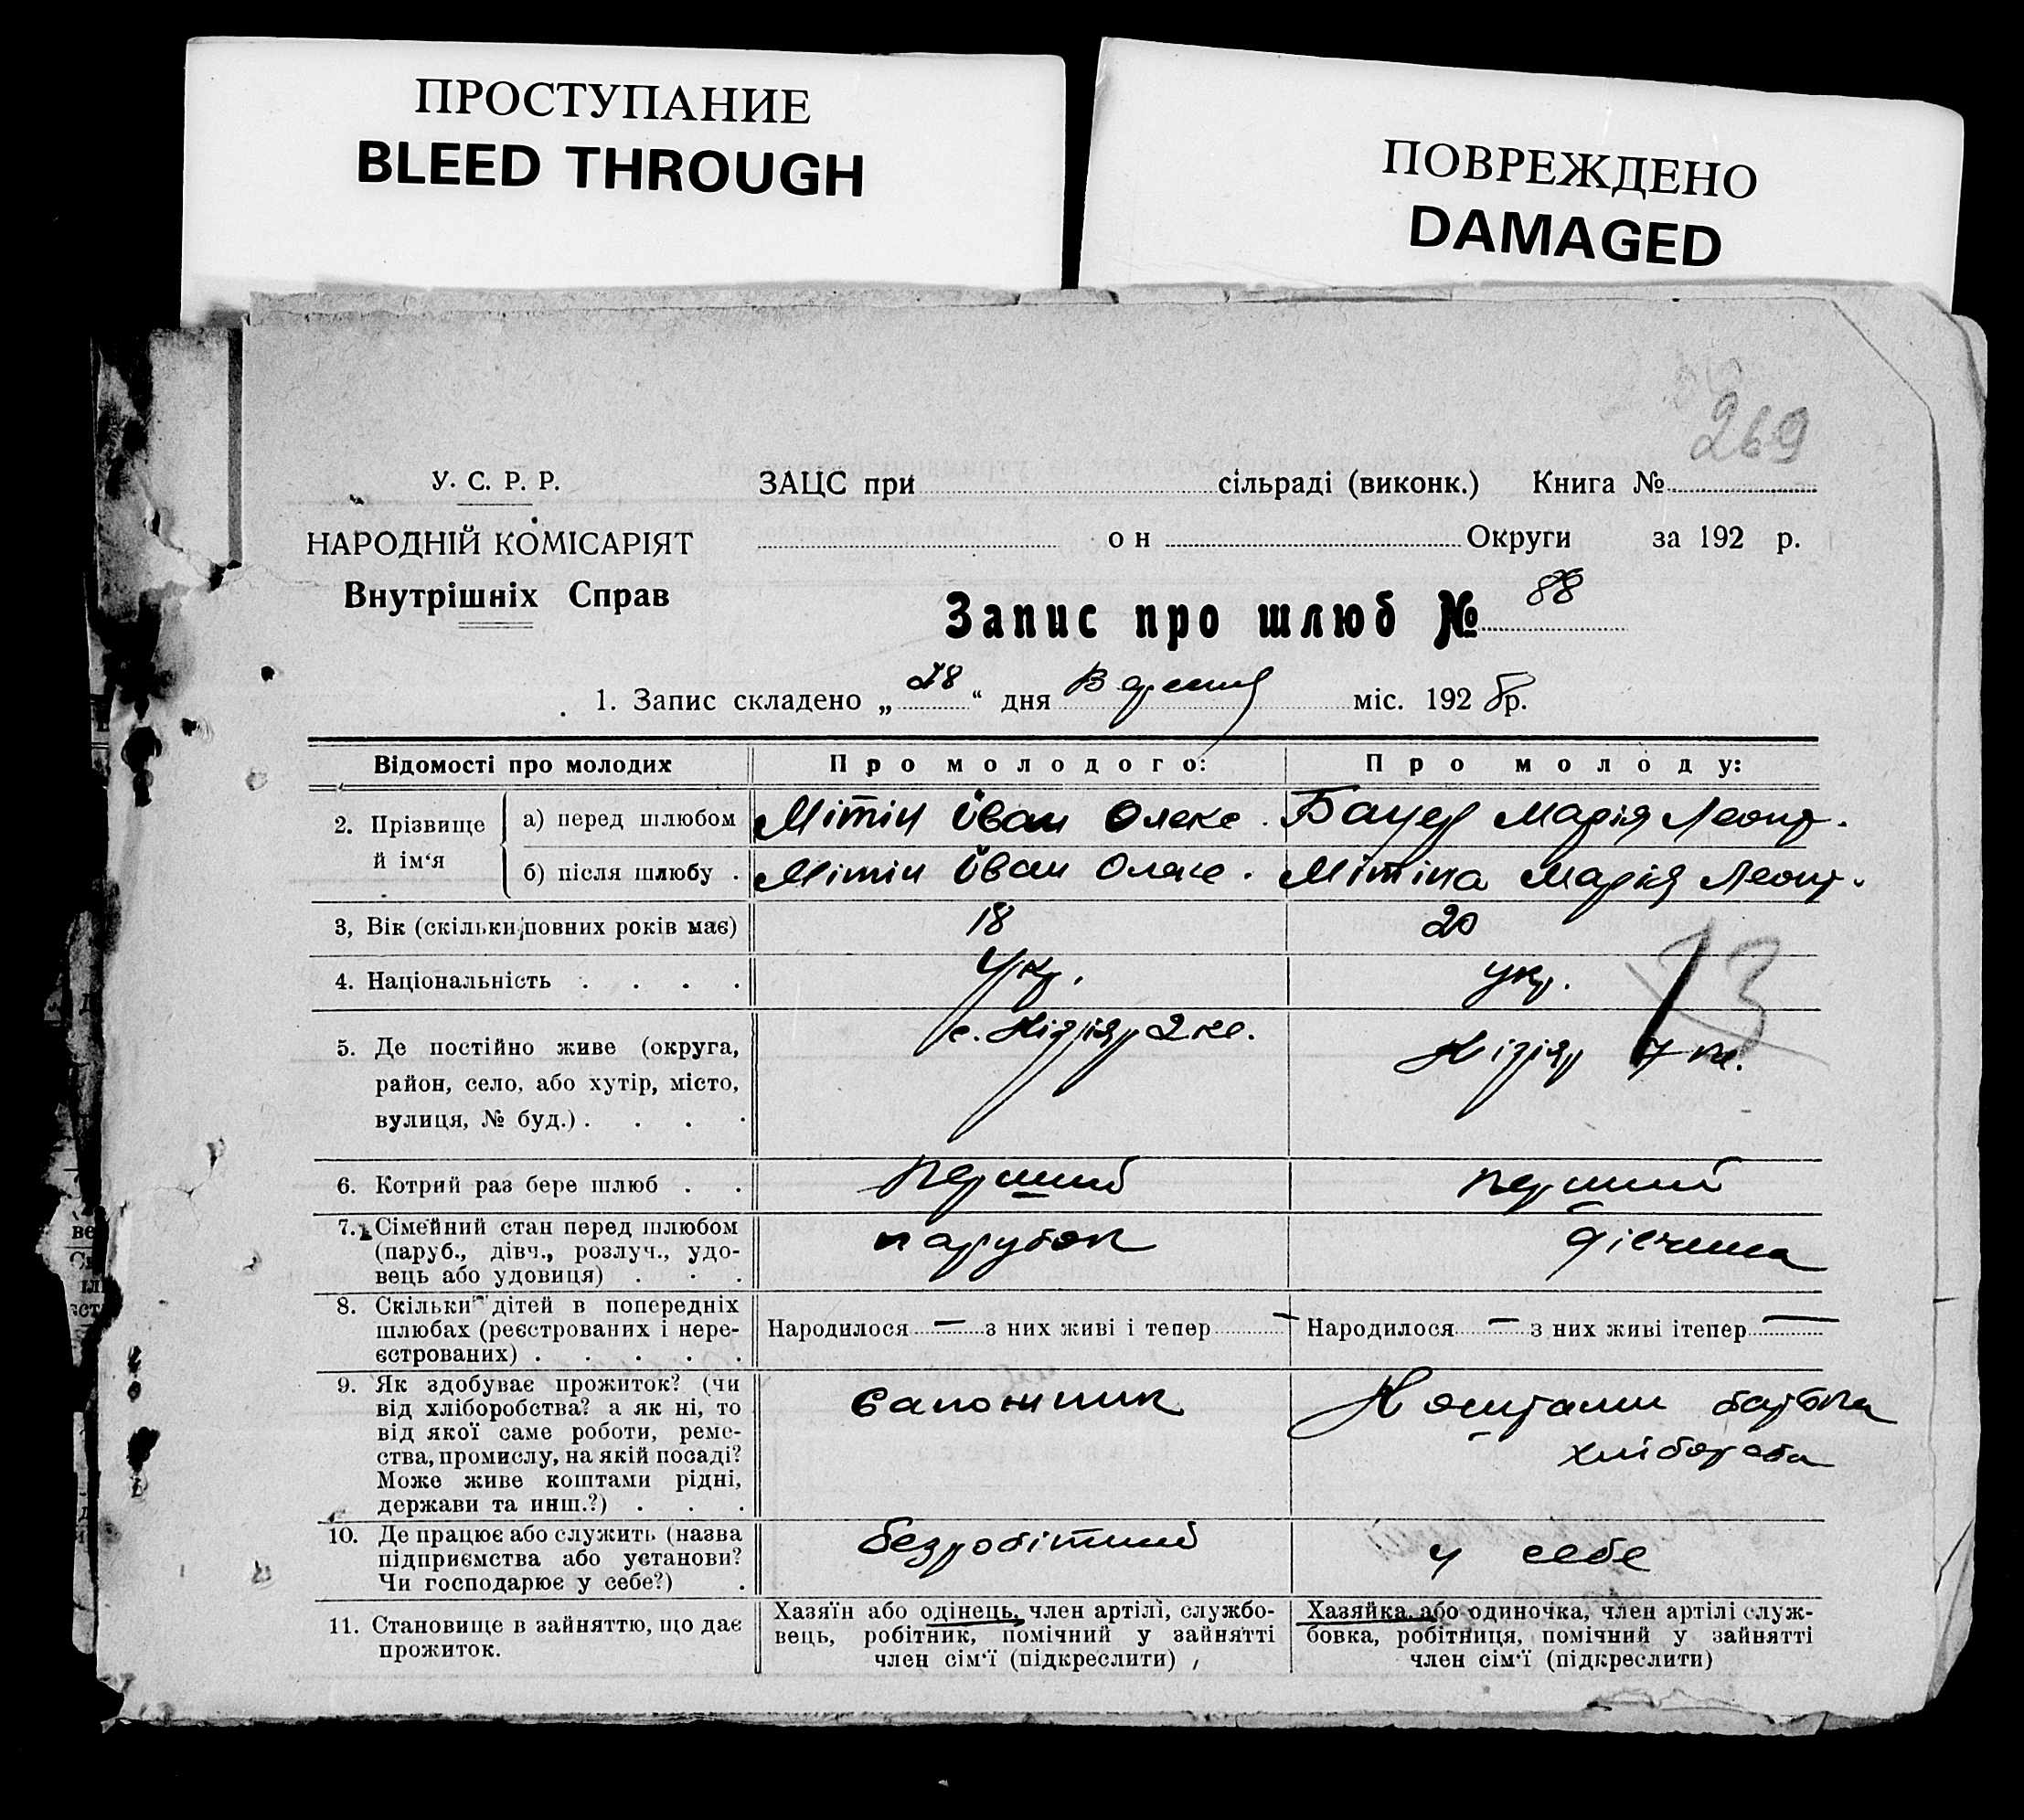 ПРОСТУПАНИЕ
BLEED THROUGH
ПОВРЕЖДЕНО
DAMAGED
269
У. С. Р. Р.
НАРОДНІЙ КОМІСАРІЯТ
Внутрішніх Справ
ЗАЦС при сільраді (виконк.) Книга №
он Округи за 192 р.
Запис про шлюб № 88
1. Запис складено „28“ дня Вересня міс. 1928 р.
Відомості про молодих
Про молодого:
Про молоду:
2. Прізвище й ім‘я
а) перед шлюбом
Мітін Іван Олекс.
Бауер Марія Леонт.
б) після шлюбу .
Мітін Іван Олекс.
Мітіна Марія Леонт.
3, Вік (скільки повних років має)
18
20
4. Національність . . . .
Укр.
укр.
13
5. Де постійно живе (округа,
район, село, або хутір, місто,
вулиця, № буд.) . . . .
с. 2
7
6. Котрий раз бере шлюб . .
перший
перший
7. Сімейний стан перед шлюбом
(паруб., дівч., розлуч., удо-
вець або удовиця) . . .
парубок
дівчина
8. Скільки дітей в попередніх
шлюбах (реєстрованих і нере-
єстрованих) . . . . .
Народилося — з них живі і тепер —
Народилося — з них живі ітепер —
9. Як здобуває прожиток? (чи
від хліборобства? а як ні, то
від якої саме роботи, реме-
ства, промислу, на якій посаді?
Може живе коштами рідні,
держави та инш.?) . . .
Сапожник
Коштами батька
хлібороба
10. Де працює або служить (назва
підприємства або установи?
Чи господарює у себе?) .
безробітний
у себе
11. Становище в зайняттю, що дає
прожиток.
Хазяїн або одінець, член артілі, службо-
вець, робітник, помічний у зайнятті
член сім‘ї (підкреслити)
Хазяйка або одиночка, член артілі служ-
бовка, робітниця, помічний у зайнятті
член сім‘ї (підкреслити)